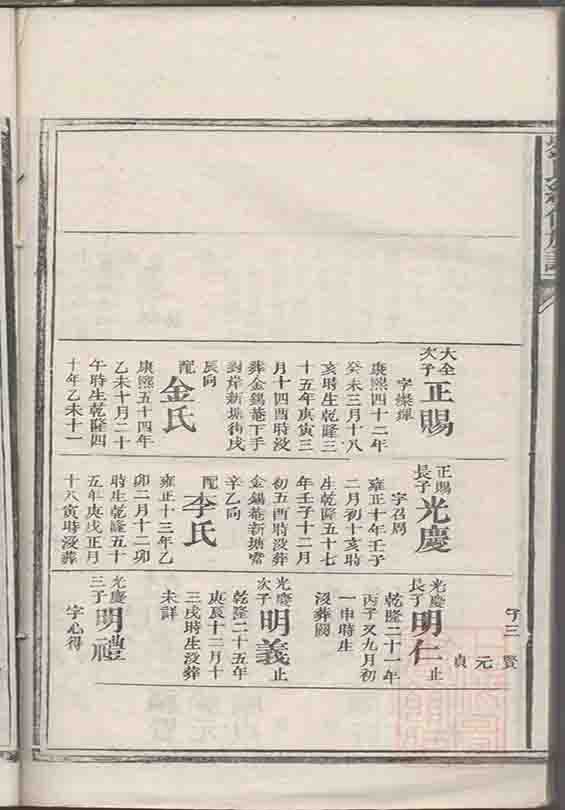 大全
次子
正賜
字燦煇
康熙四十二年
癸未三月十八
亥時生乾隆三
十五年庚寅三
月十四酉時没
葬金錫菴下手
對岸新塘
辰向
配
金氏
康熙五十四年
乙未十月二十
午時生乾隆四
十年乙未十一
正賜
長子
光慶
字召周
雍正十年壬子
二月初十亥時
生乾隆五十七
年壬子十二月
初五酉時没葬
金錫菴新塘
辛乙向
配
李氏
雍正十三年乙
卯二月十二卯
時生乾隆五十
五年庚戌正月
十八寅時没葬
光慶
長子
明仁
止
乾隆二十一年
丙子又九月初
一申時生
没葬闕
光慶
次子
明義
止
乾隆二十五年
庚辰十二月十
三戌時生没葬
未詳
光慶
三子
明禮
字心得
賢元貞